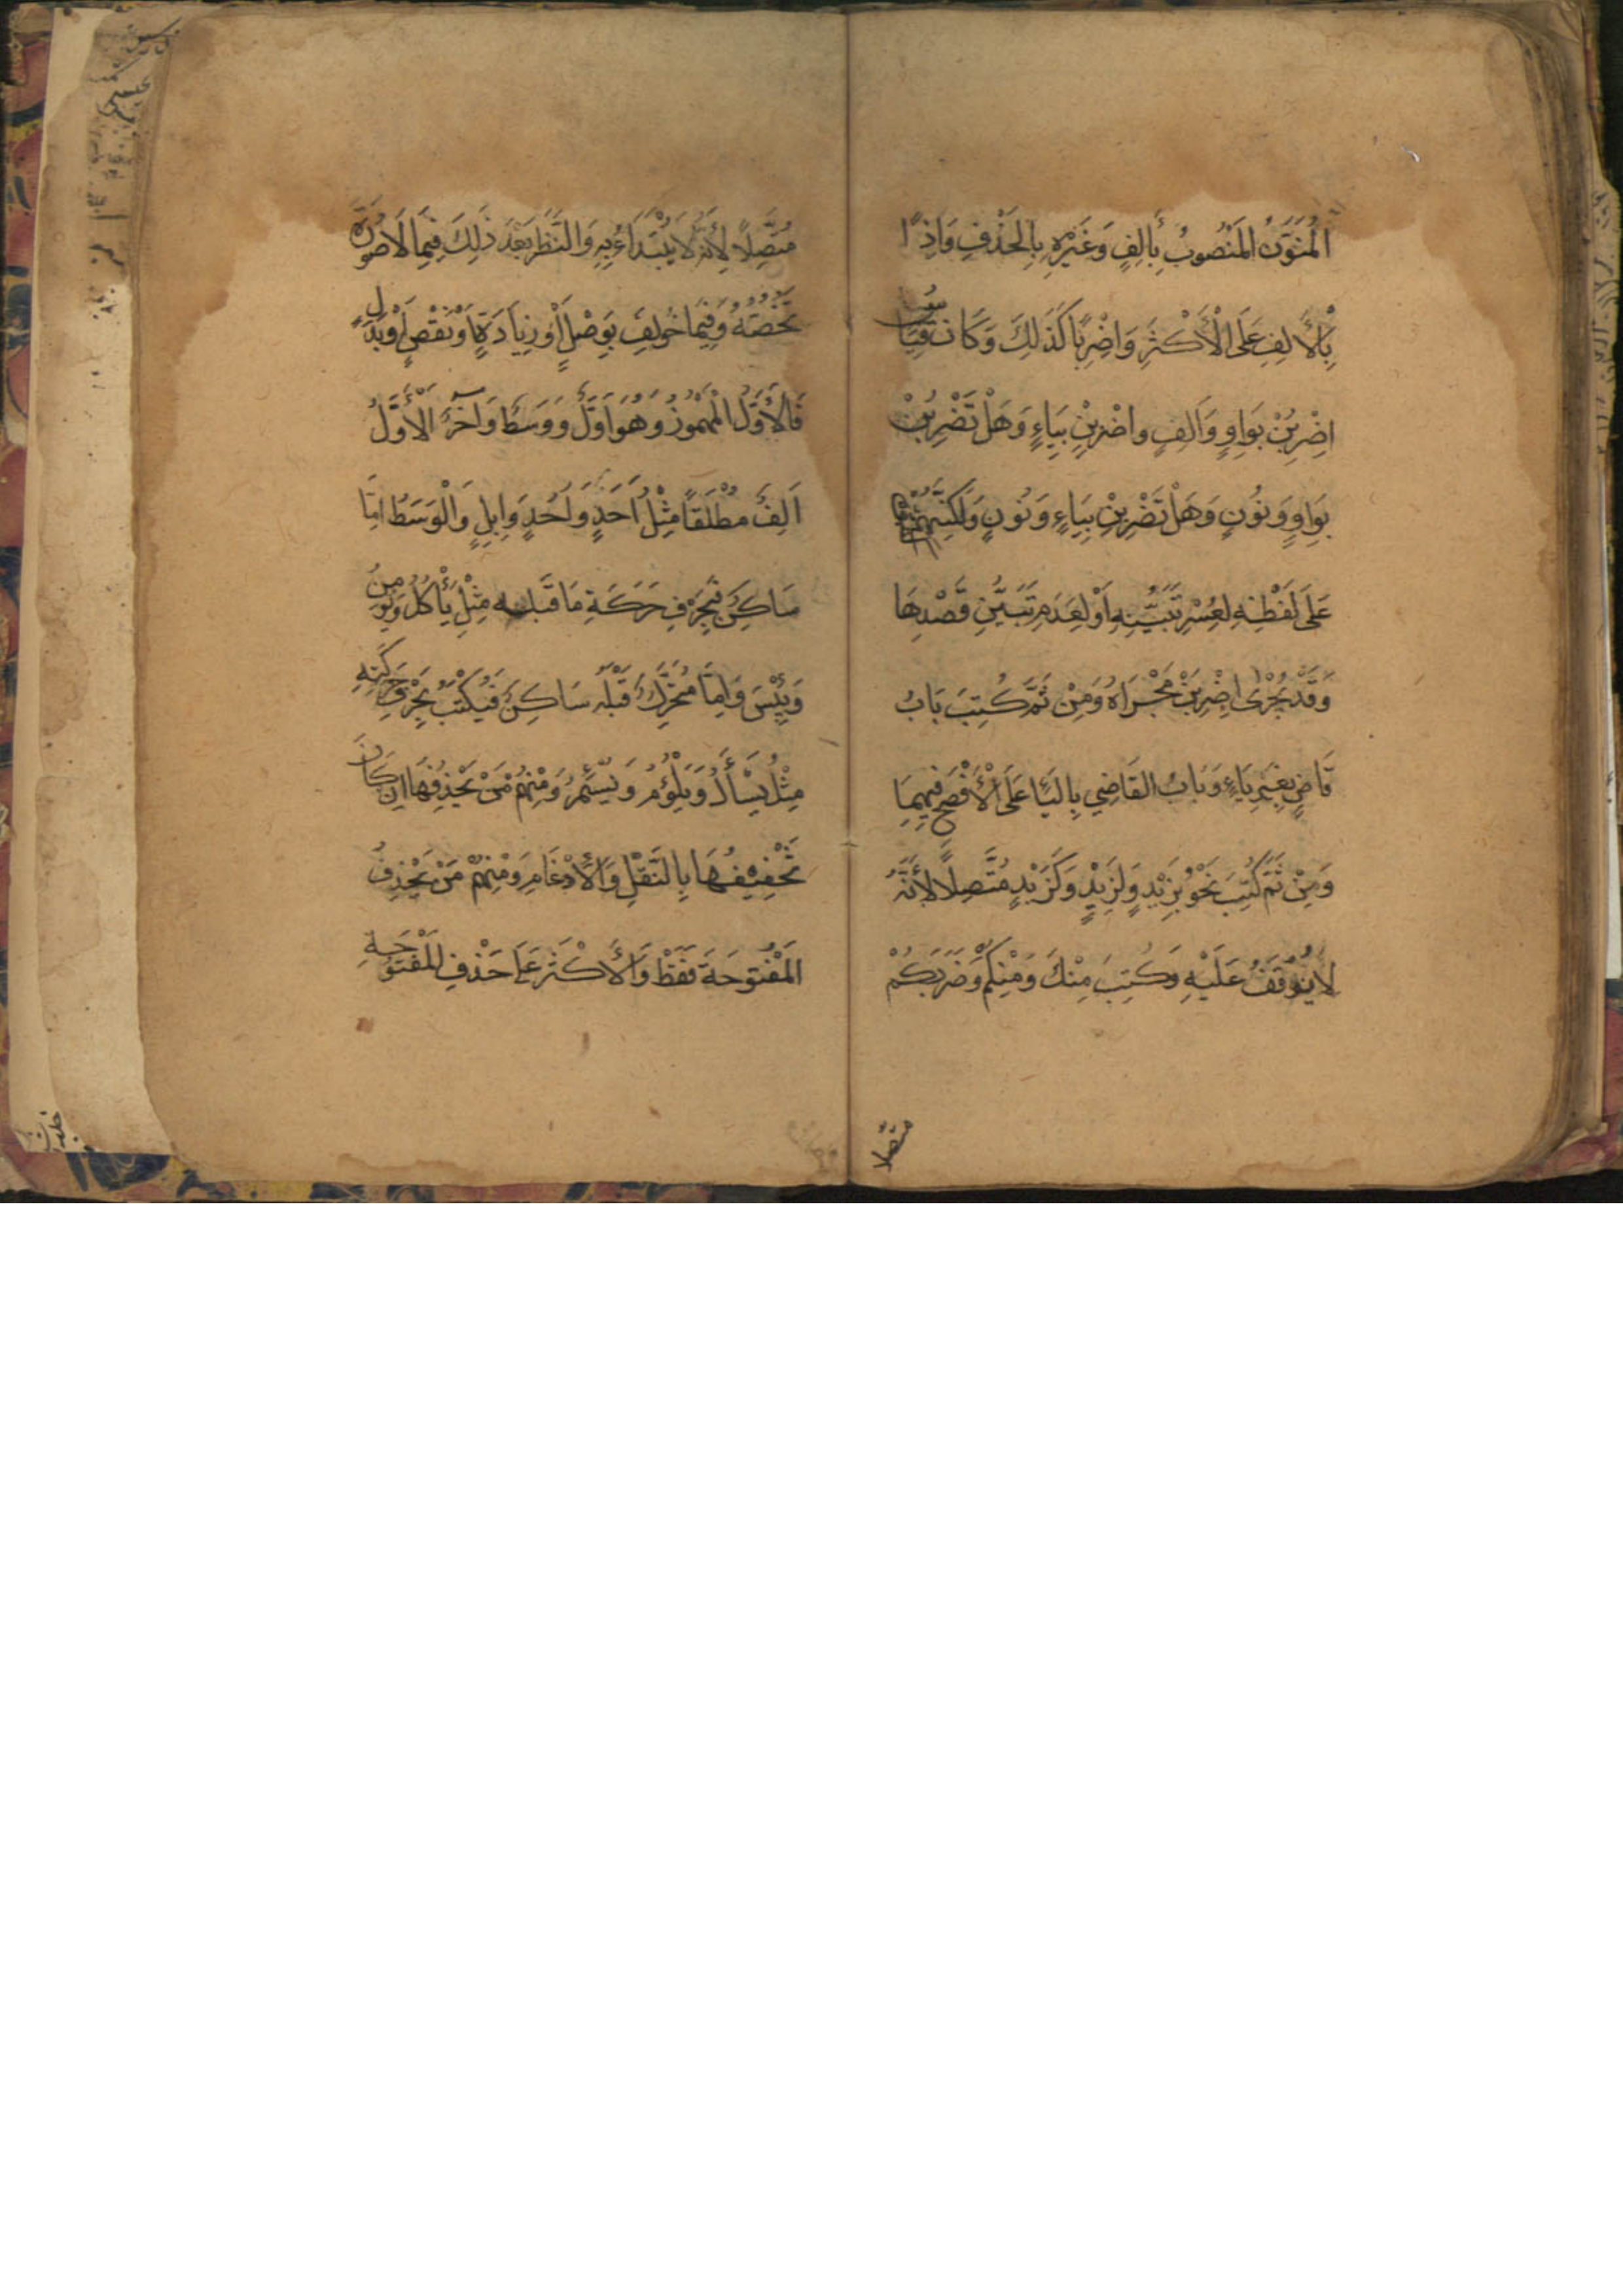 الْمُنَوَّنُ الْمَنْصُوبُ بِأَلِفٍ وَغَيْرُهُ بِالْحَذْفِ وَإِذًا
بِالْأَلِفِ عَلَى الْأَكْثَرِ وَاضْرِبًا كَذَلِكَ وَكَانَ قِيَاسُ
اضْرِبُنْ بِوَاوٍ وَأَلِفٍ وَاضْرِبِنْ بِيَاءٍ وَهَلْ تَضْرِبُنْ
بِوَاوٍ وَنُونٍ وَهَلْ تَضْرِبِنْ بِيَاءٍ وَنُونٍ وَلَكِنَّهُمْ
عَلَى لَفْظِهِ لِعُسْرِ تَبَيُّنِهِ أَوْ لِعَدَمِ تَبَيُّنِ قَصْدِهَا
وَقَدْ يُجْرَى اضْرِبَنْ مَجْرَاهُ وَمِنْ ثَمَّ كُتِبَ بَابُ
قَاضٍ بِغَيْرِ يَاءٍ وَبَابُ الْقَاضِي بِالْيَاءِ عَلَى الْأَفْصَحِ فِيهِمَا
وَمِنْ ثَمَّ كُتِبَ نَحْوُ بِزَيْدٍ وَلِزَيْدٍ وَكَزَيْدٍ مُتَّصِلًا لِأَنَّهُ
لَا يُوقَفُ عَلَيْهِ وَكُتِبَ مِنْكَ وَمِنْكُمْ وَضَرَبَكُمْ
متصلا
مُتَّصِلًا لِأَنَّهُ لَا يُبْتَدَاءُ بِهِ وَالنَّظَرُ بَعْدَ ذَلِكَ فِيمَا لَا صُورَةَ
تَخُصُّهُ وَفِيمَا خُولِفَ بِوَصْلٍ أَوْ زِيَادَةٍ أَوْ نَقْصٍ أَوْ بَدَلٍ
فَالْأَوَّلُ الْمَهْمُوزُ وَهُوَ أَوَّلٌ وَوَسَطٌ وَآخَرُ الْأَوَّلُ
أَلِفٌ مُطْلَقًا مِثْلُ أَحَدٍ وَأُحُدٍ وَإِبِلٍ وَالْوَسَطُ إِمَّا
سَاكِنٌ فَبِحَرْفِ حَرَكَةِ مَا قَبْلَهُ مِثْلُ يَأْكُلُ وَيُؤْمِنُ
وَبِئْسَ وَإِمَّا مُتَحَرِّكٌ قَبْلَهُ سَاكِنٌ فَيُكْتَبُ بِحَرْفِ حَرَكَتِهِ
مِثْلُ يَسْأَلُ وَيَلْؤُمُ وَيُسْئِمُ وَمِنْهُمْ مَنْ يَحْذِفُهَا إِنْ كَانَ
تَخْفِيفُهَا بِالنَّقْلِ وَالْإِدْغَامِ وَمِنْهُمْ مَنْ يَحْذِفُ
الْمَفْتُوحَةَ فَقَطْ وَالْأَكْثَرُ عَلَى حَذْفِ الْمَفْتُوحَةِ